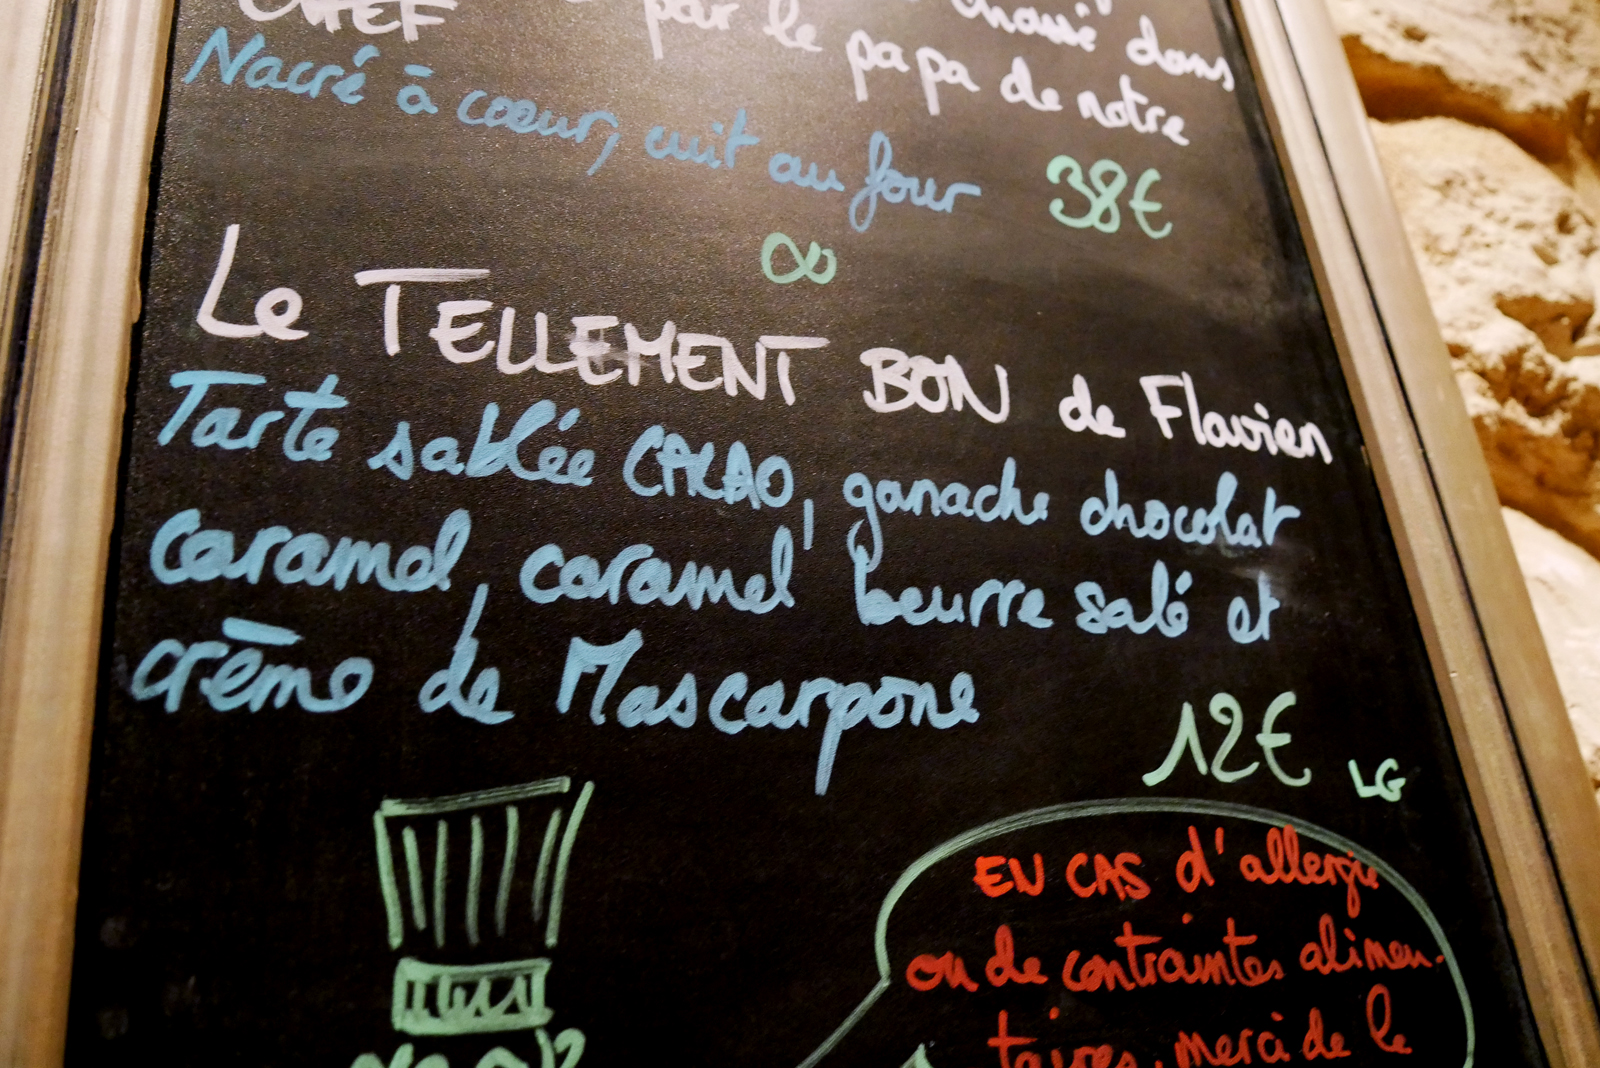 chassé dans
CHEF par le papa de notre
Nacré à cœur, cuit au four 38€
Le TELLEMENT BON de Flavien
Tarte sablée CACAO, ganache chocolat
caramel, caramel beurre salé et
crème de Mascarpone
12€ LG
EN CAS d'allergie
ou de contraintes alimen-
taires, merci de le